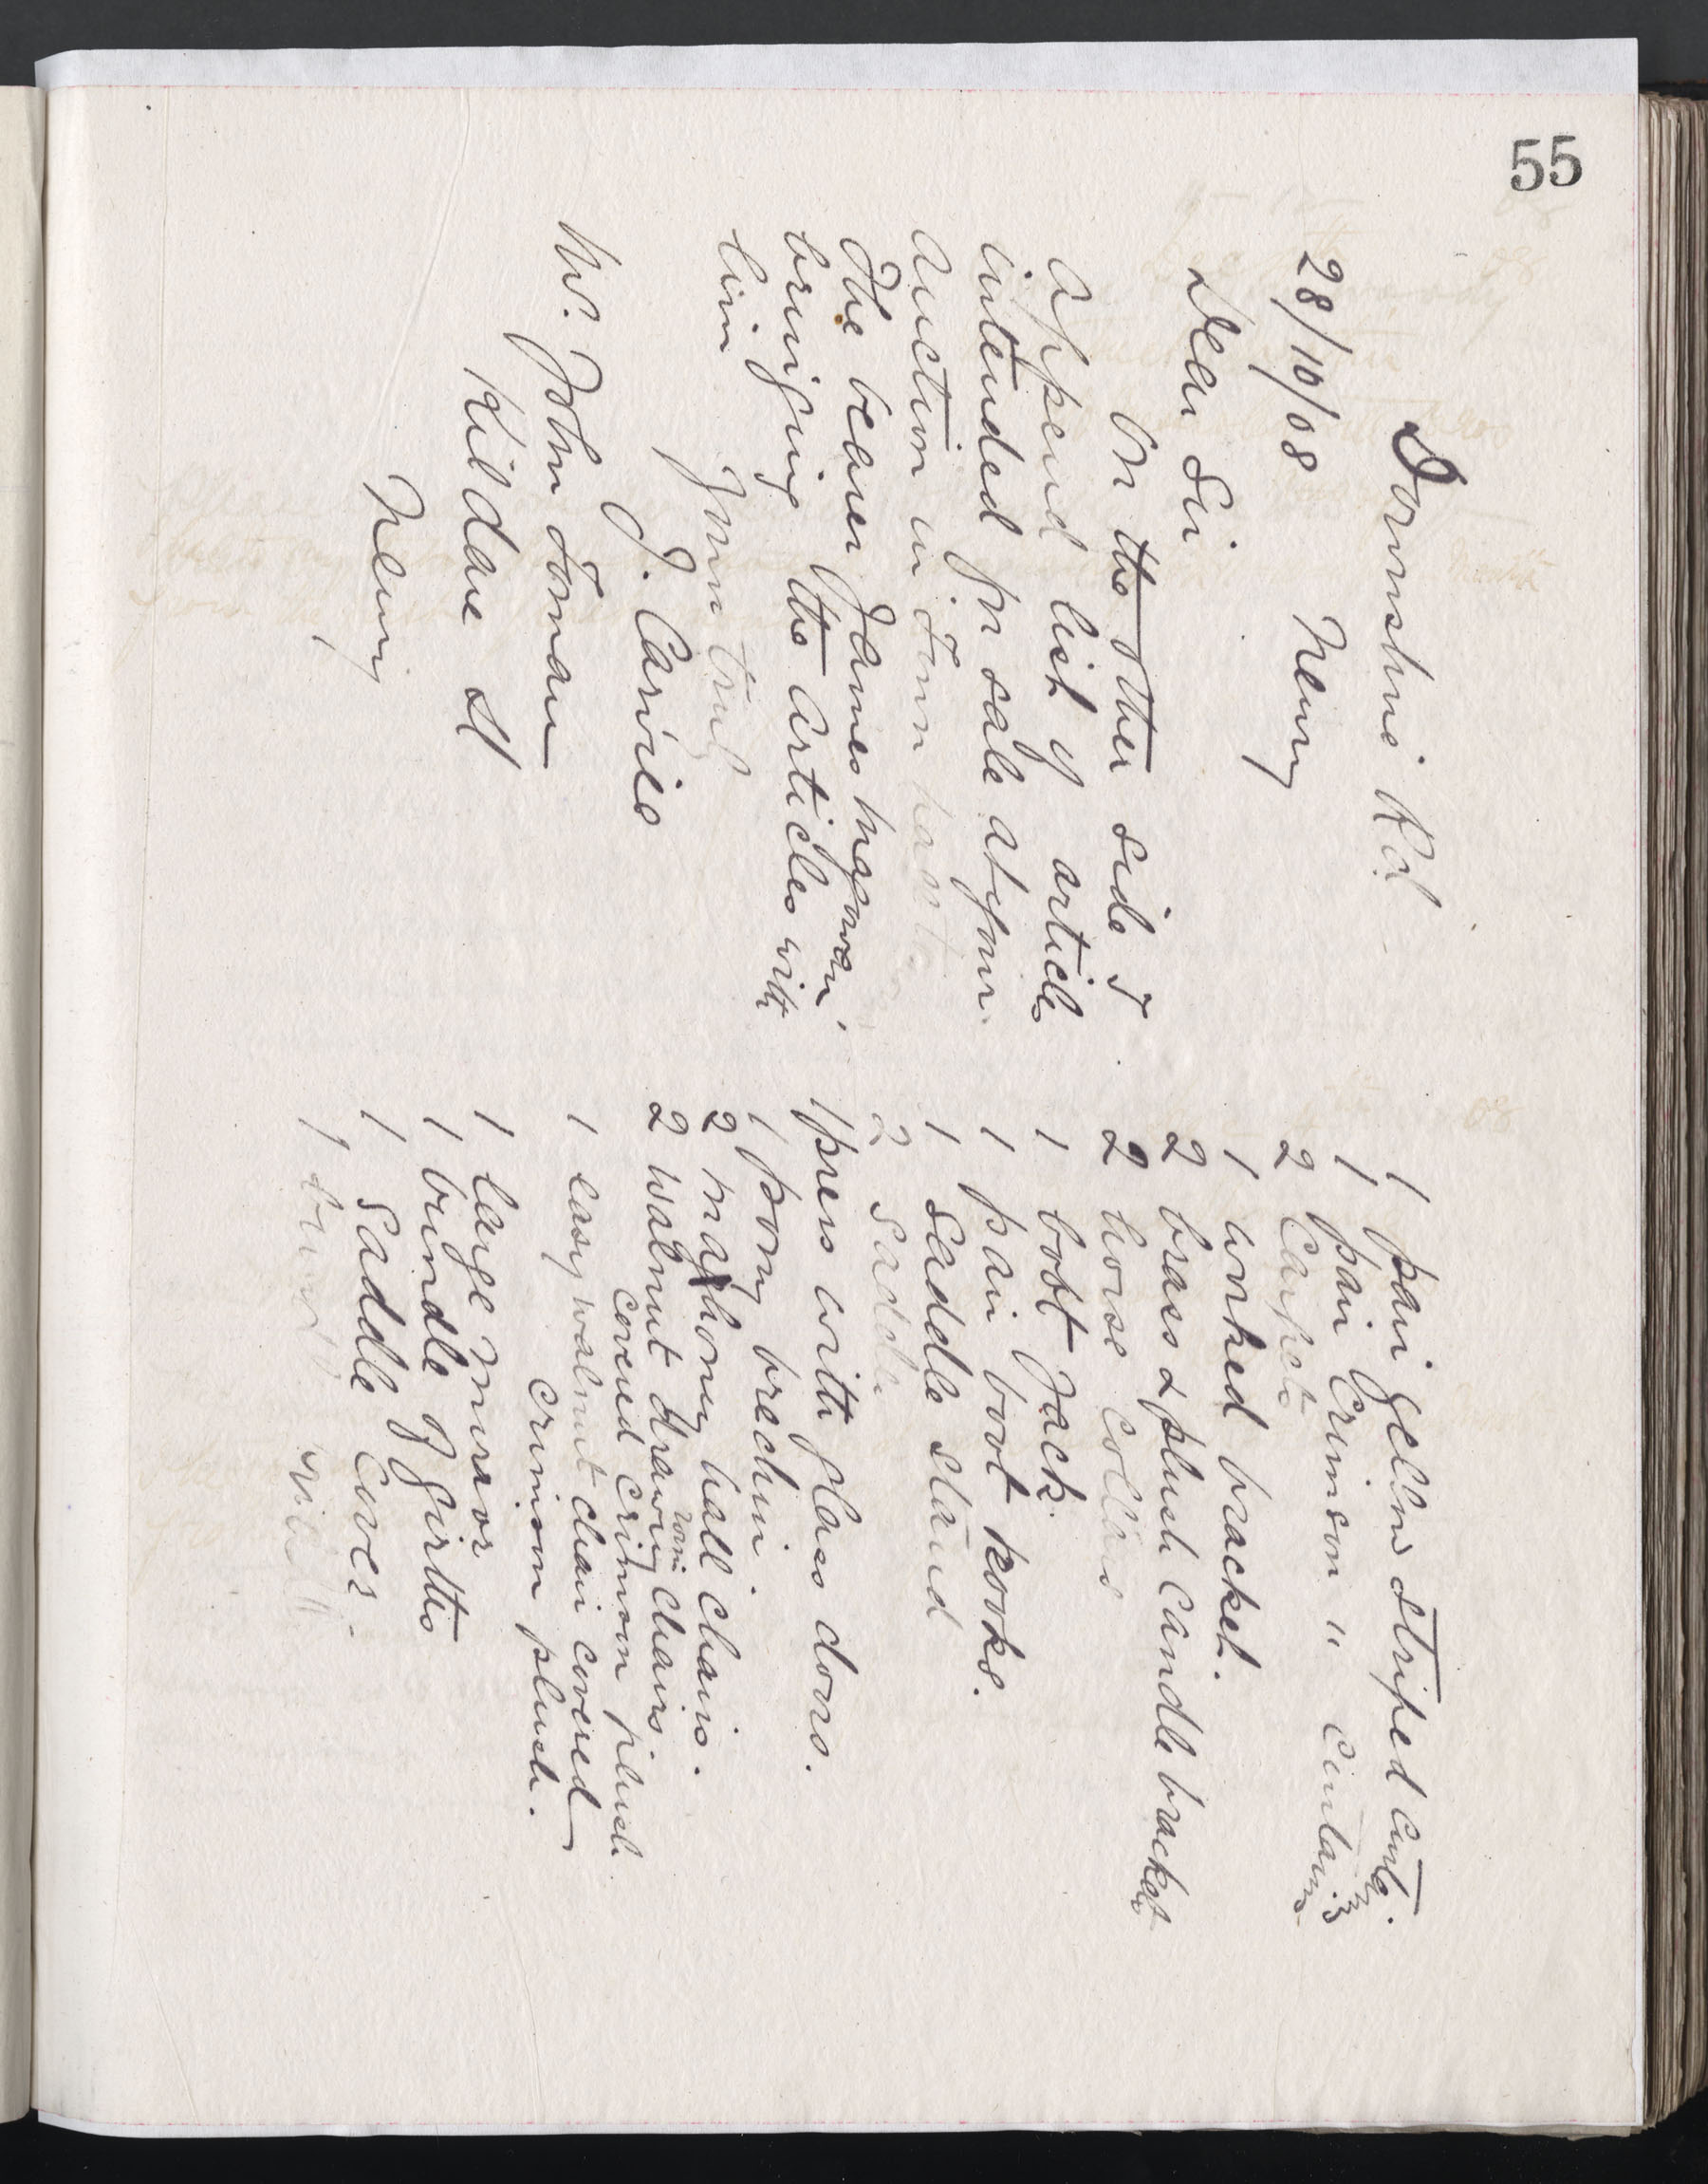 55
Downshire Rd
28/10/08 Newry
Dear Sir
On the other side I
append list of articles
intended for sale at your
auction in Town hall
The bearer James Magovern
bringing the articles with
him
Yours truly
J. Carvill
Mr. John Toman
Kildare St
Newry
1 pair yellow striped curtn.
1 pair Crimson " Curtains
2 Carpets
1 worked bracket.
2 brass & plush candle brackets
2 horse collars
1 boot Jack.
1 pair boot hooks.
1 Saddle stand
2 Saddle
1 press with glass doors.
1 pony brechin.
2 mahhoney hall chairs.
2 walnut drawing room chairs
covered crimson plush.
1 easy walnut chair covered
crimson plush.
1 large mirror
1 bundle of girths
1 Saddle Cover.
1